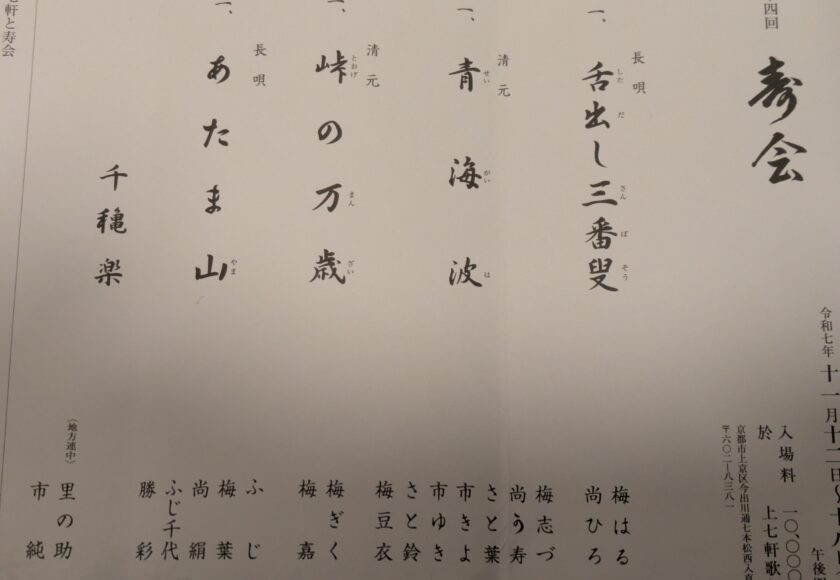 四回
寿会
令和七年 十一月十二日
午後
入場料 一〇、〇〇〇
於 上七軒歌
京都市上京区今出川通七本松西入
〒六〇二ー八三八一
一、長唄 舌出し三番叟
した だ さん ば そう
梅はる
尚ひろ
一、清元 青海波
せい がい は
梅志づ
尚う寿
さと葉
市きよ
市ゆき
さと鈴
梅豆衣
一、清元 峠の万歳
とおげ まん ざい
梅ぎく
梅嘉
一、長唄 あたま山
やま
ふじ
梅葉
尚絹
ふじ千代
勝彩
千穐楽
(地方連中)
里の助
市純
軒と寿会